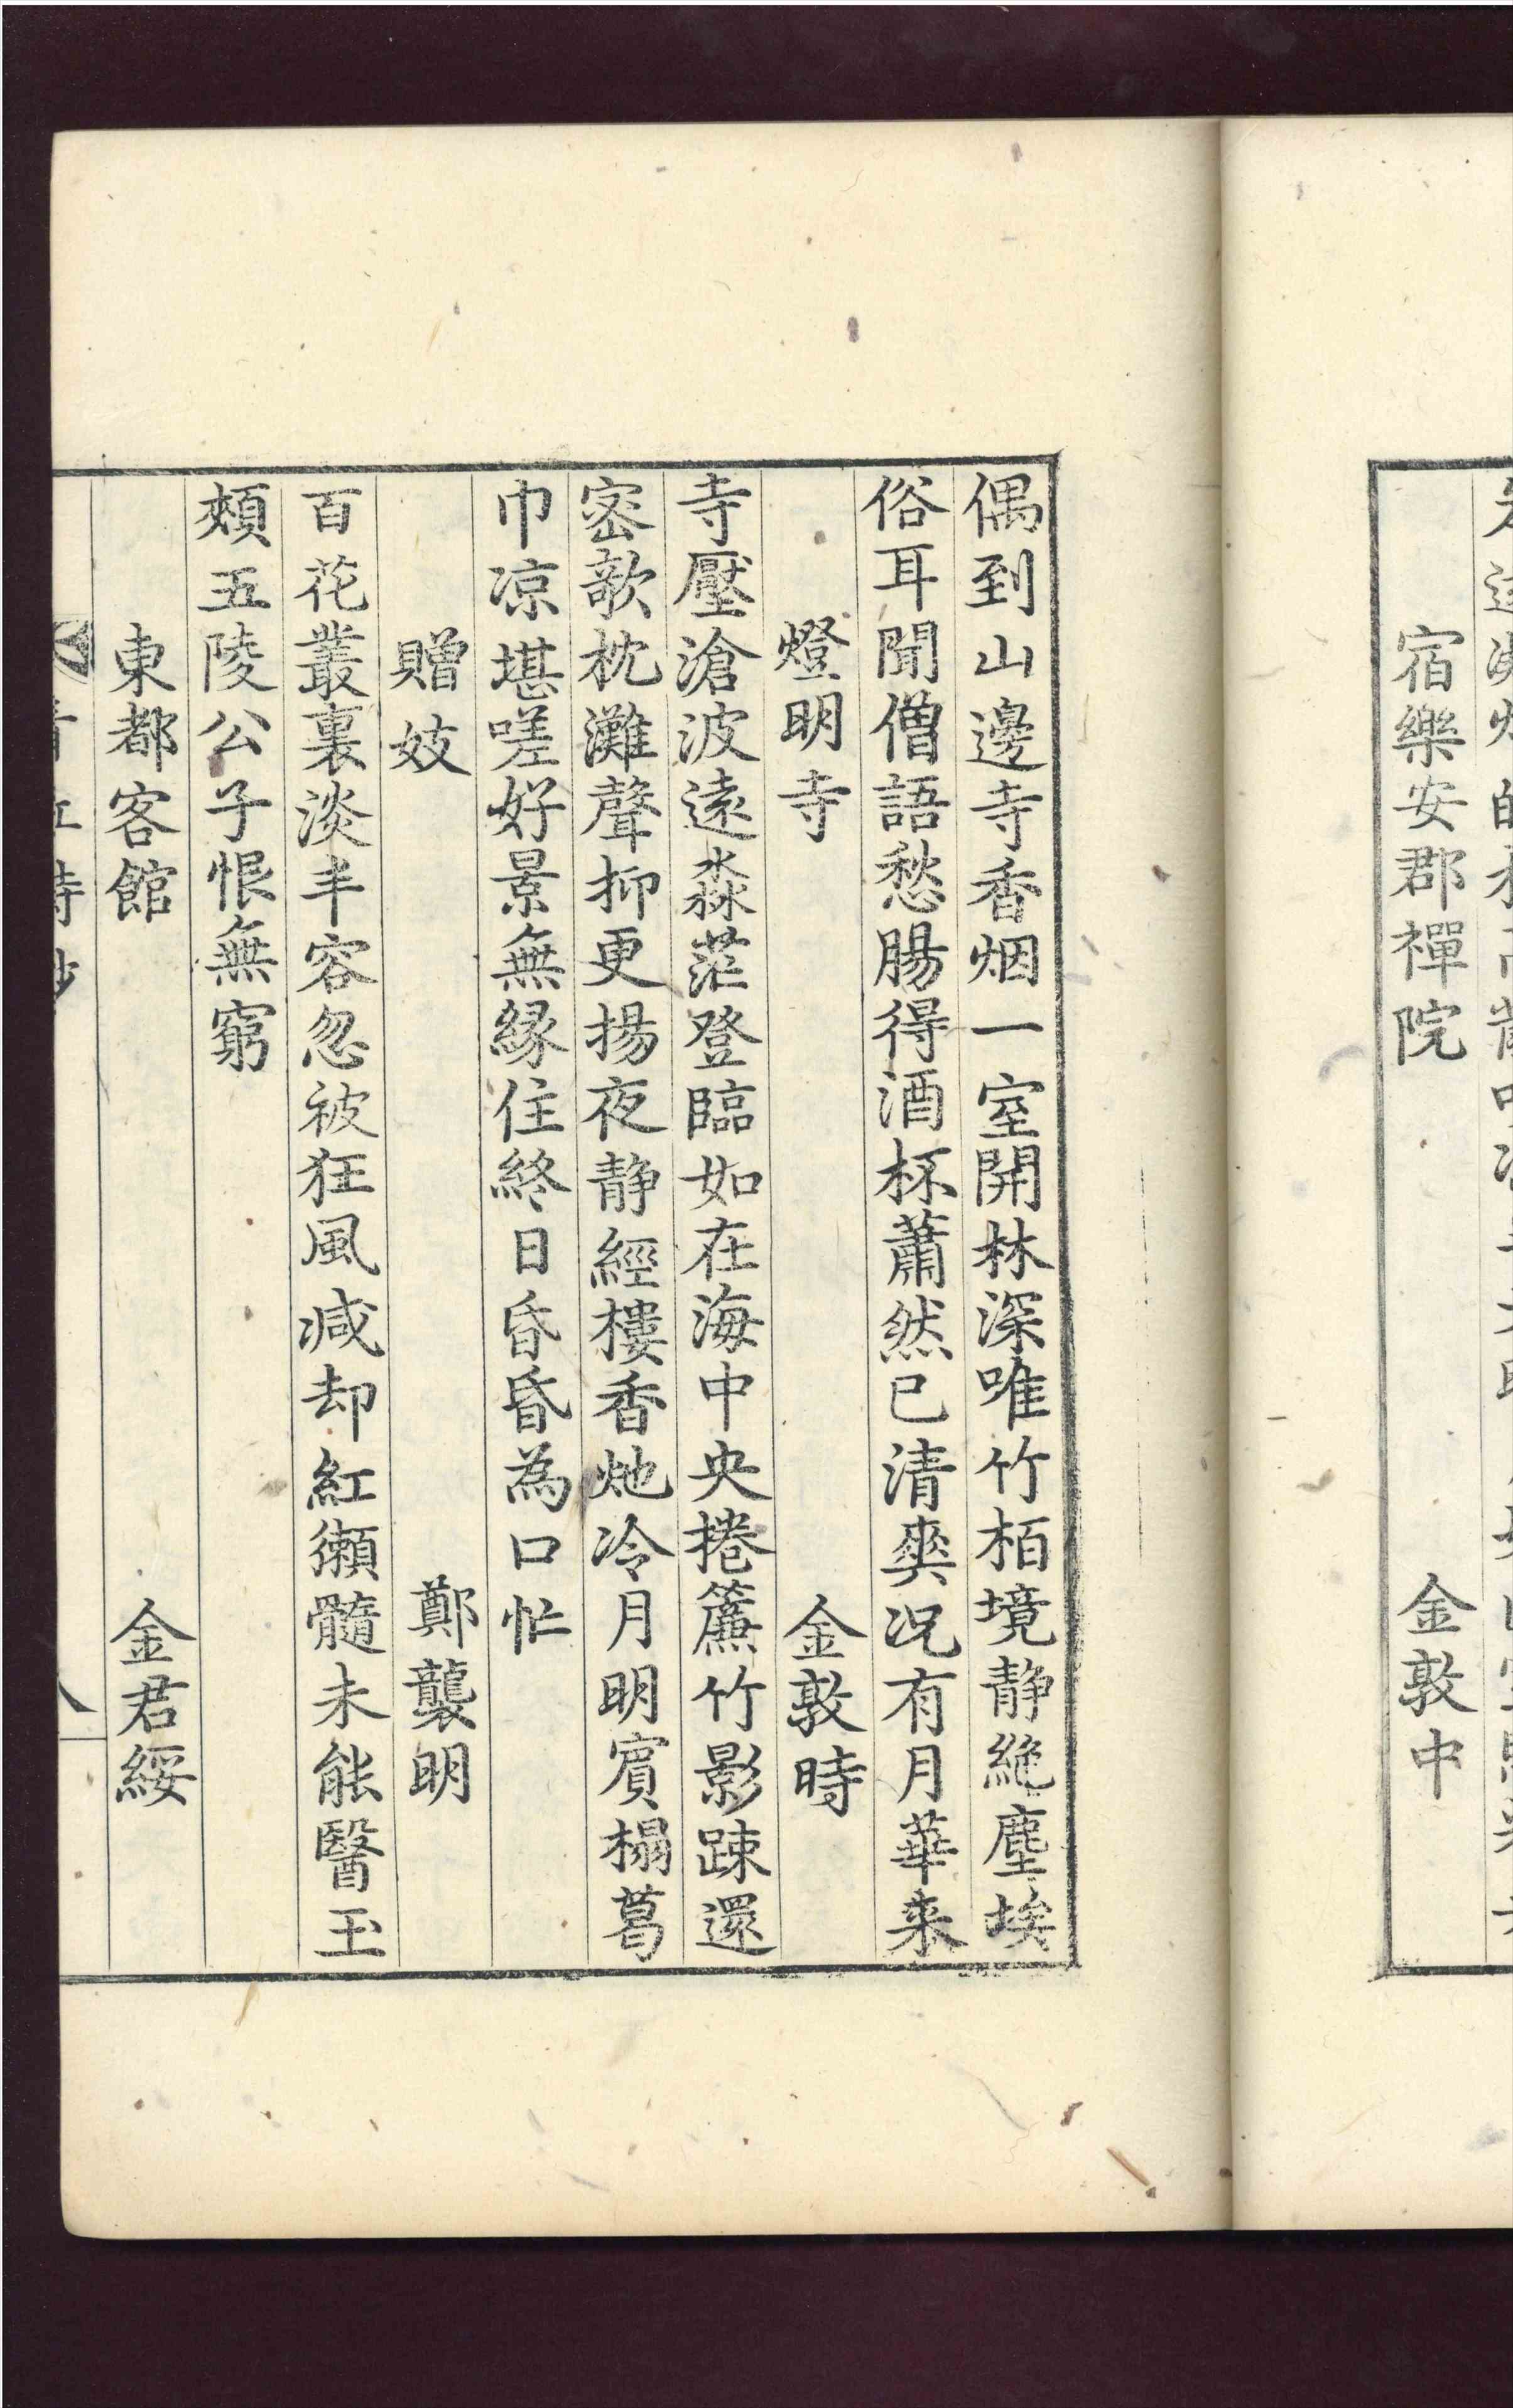 宿樂安郡禪院 金敦中
偶到山邊寺香烟一室開林深唯竹栢境静絶塵埃
俗耳聞僧語愁腸得酒杯蕭然已清爽况有月華来
燈明寺 金敦時
寺壓滄波遠淼茫登臨如在海中央捲簾竹影踈還
密欹枕灘聲抑更揚夜静經樓香灺冷月明賔榻葛
巾凉堪嗟好景無緣住終日昏昏為口忙
贈妓 鄭襲明
百花叢裏淡丰容忽被狂風减却紅獺髓未能醫玉
頰五陵公子恨無窮
東都客館 金君綏